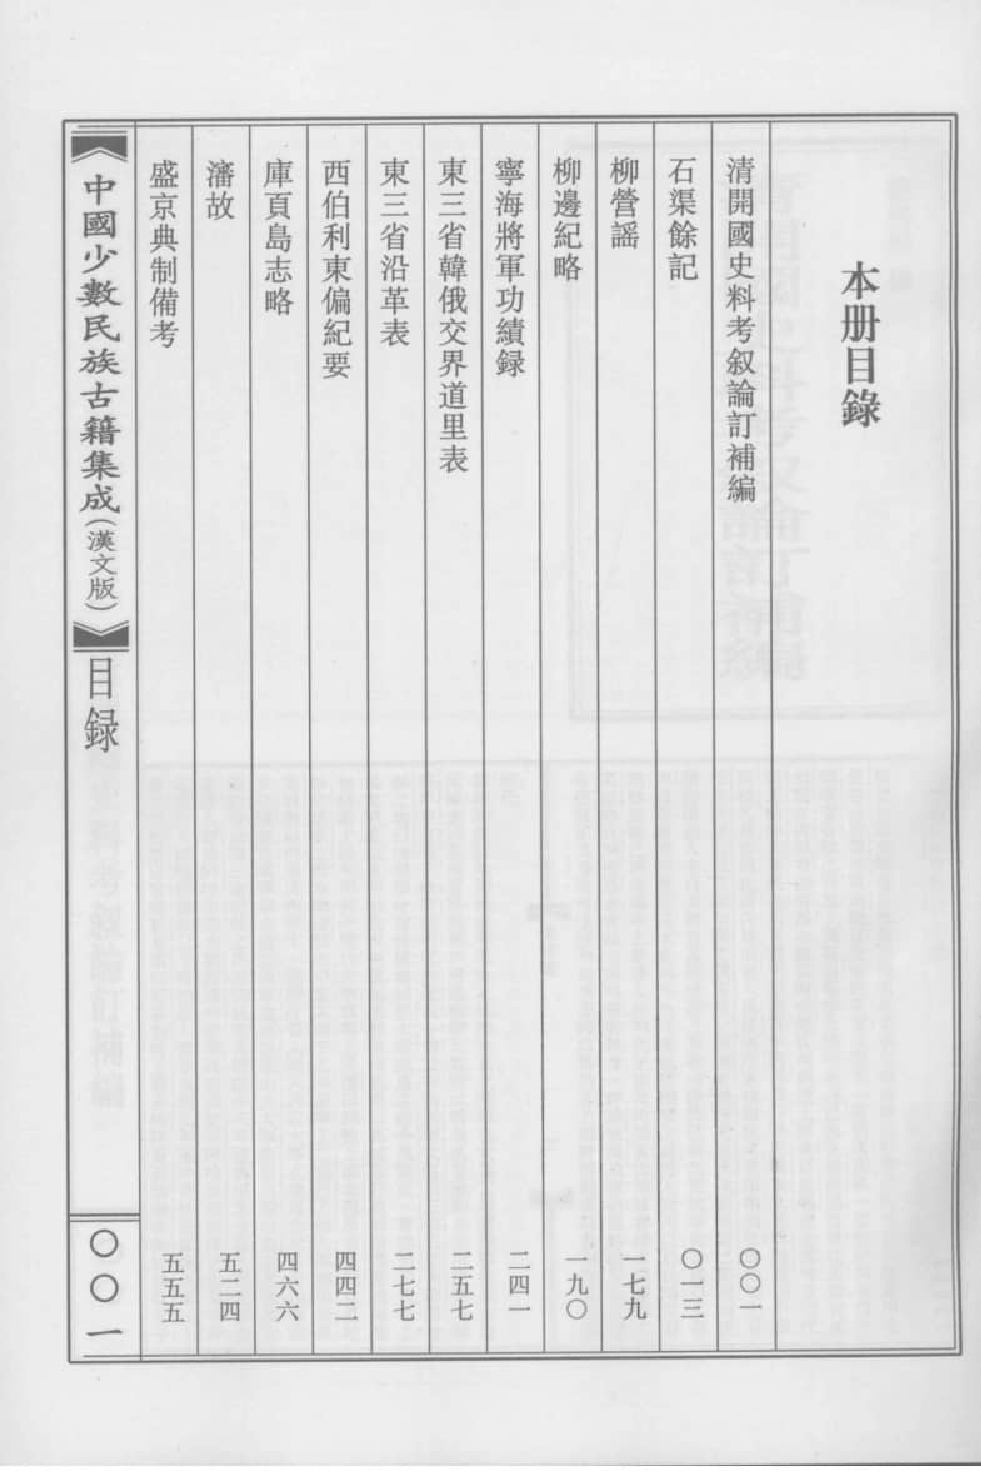 本册目錄
清開國史料考叙論訂補編
〇〇一
石渠餘記
〇一三
柳營謡
一七九
柳邊紀略
一九〇
寧海將軍功績録
二四一
東三省韓俄交界道里表
二五七
東三省沿革表
二七七
西伯利東偏紀要
四四二
庫頁島志略
四六六
瀋故
五二四
盛京典制備考
五五五
中國少數民族古籍集成(漢文版)
目録
〇〇一